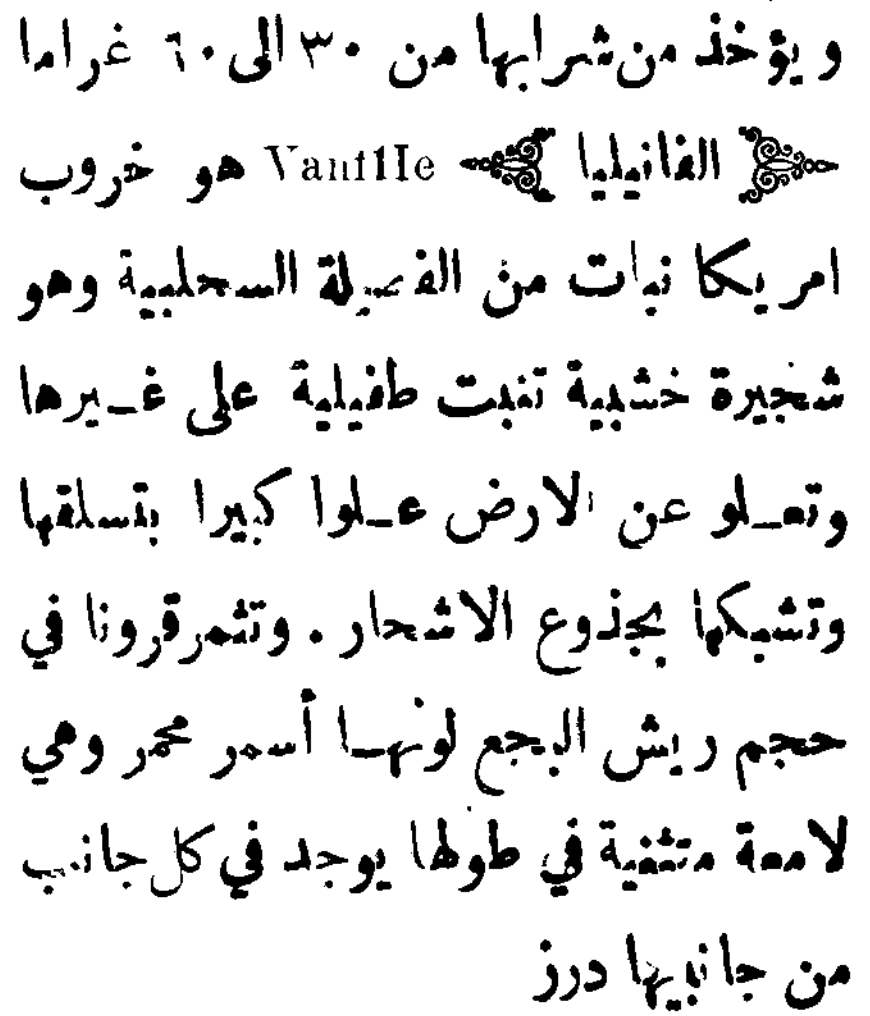 ويؤخذ من شرابها من ٣٠ الى ٦٠ غراما
الفانيليا Vant1Ie هو خروب
امريكا نبات من الفصيلة السحلبية وهو
شجيرة خشبية تنبت طفيلية على غـيرها
وتعـلو عن الارض عـلوا كبيرا بتسلقها
وتشبكها بجذوع الاشجار . وتثمر قرونا في
حجم ريش البجع لونهـا أسمر محمر وهي
لامعة متثنية في طولها يوجد في كل جانب
من جانبيها درز